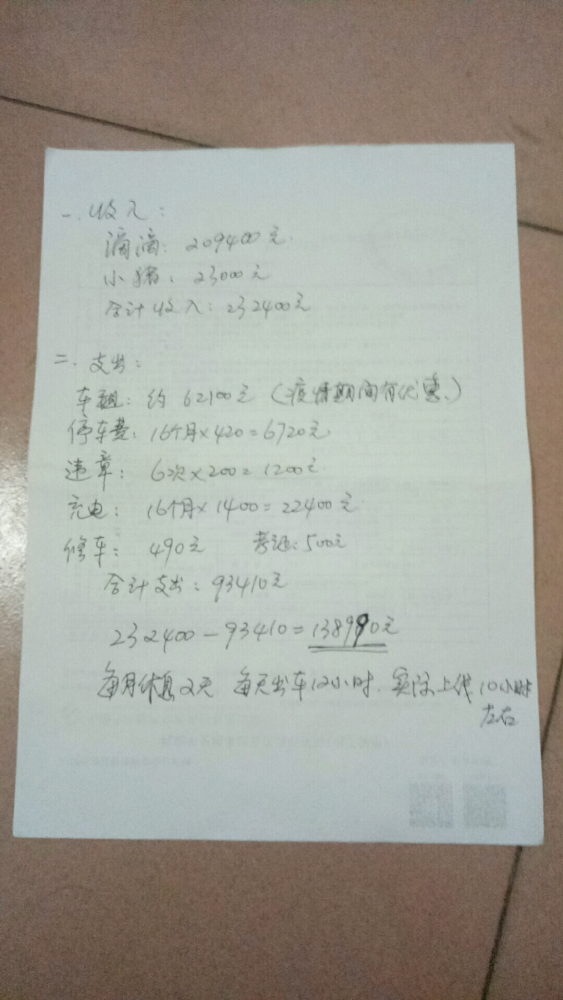 一. 收入:
滴滴: 209400元.
小猪: 23000元
合计收入: 232400元
二. 支出:
车租: 约 62100元 (疫情期间有优惠、)
停车费: 16个月×420=6720元
违章: 6次×200=1200元
充电: 16个月×1400=22400元
修车: 490元 考证: 500元
合计支出: 93410元
232400-93410=138990元
每月休息2天 每天出车12小时. 实际上线10小时
左右